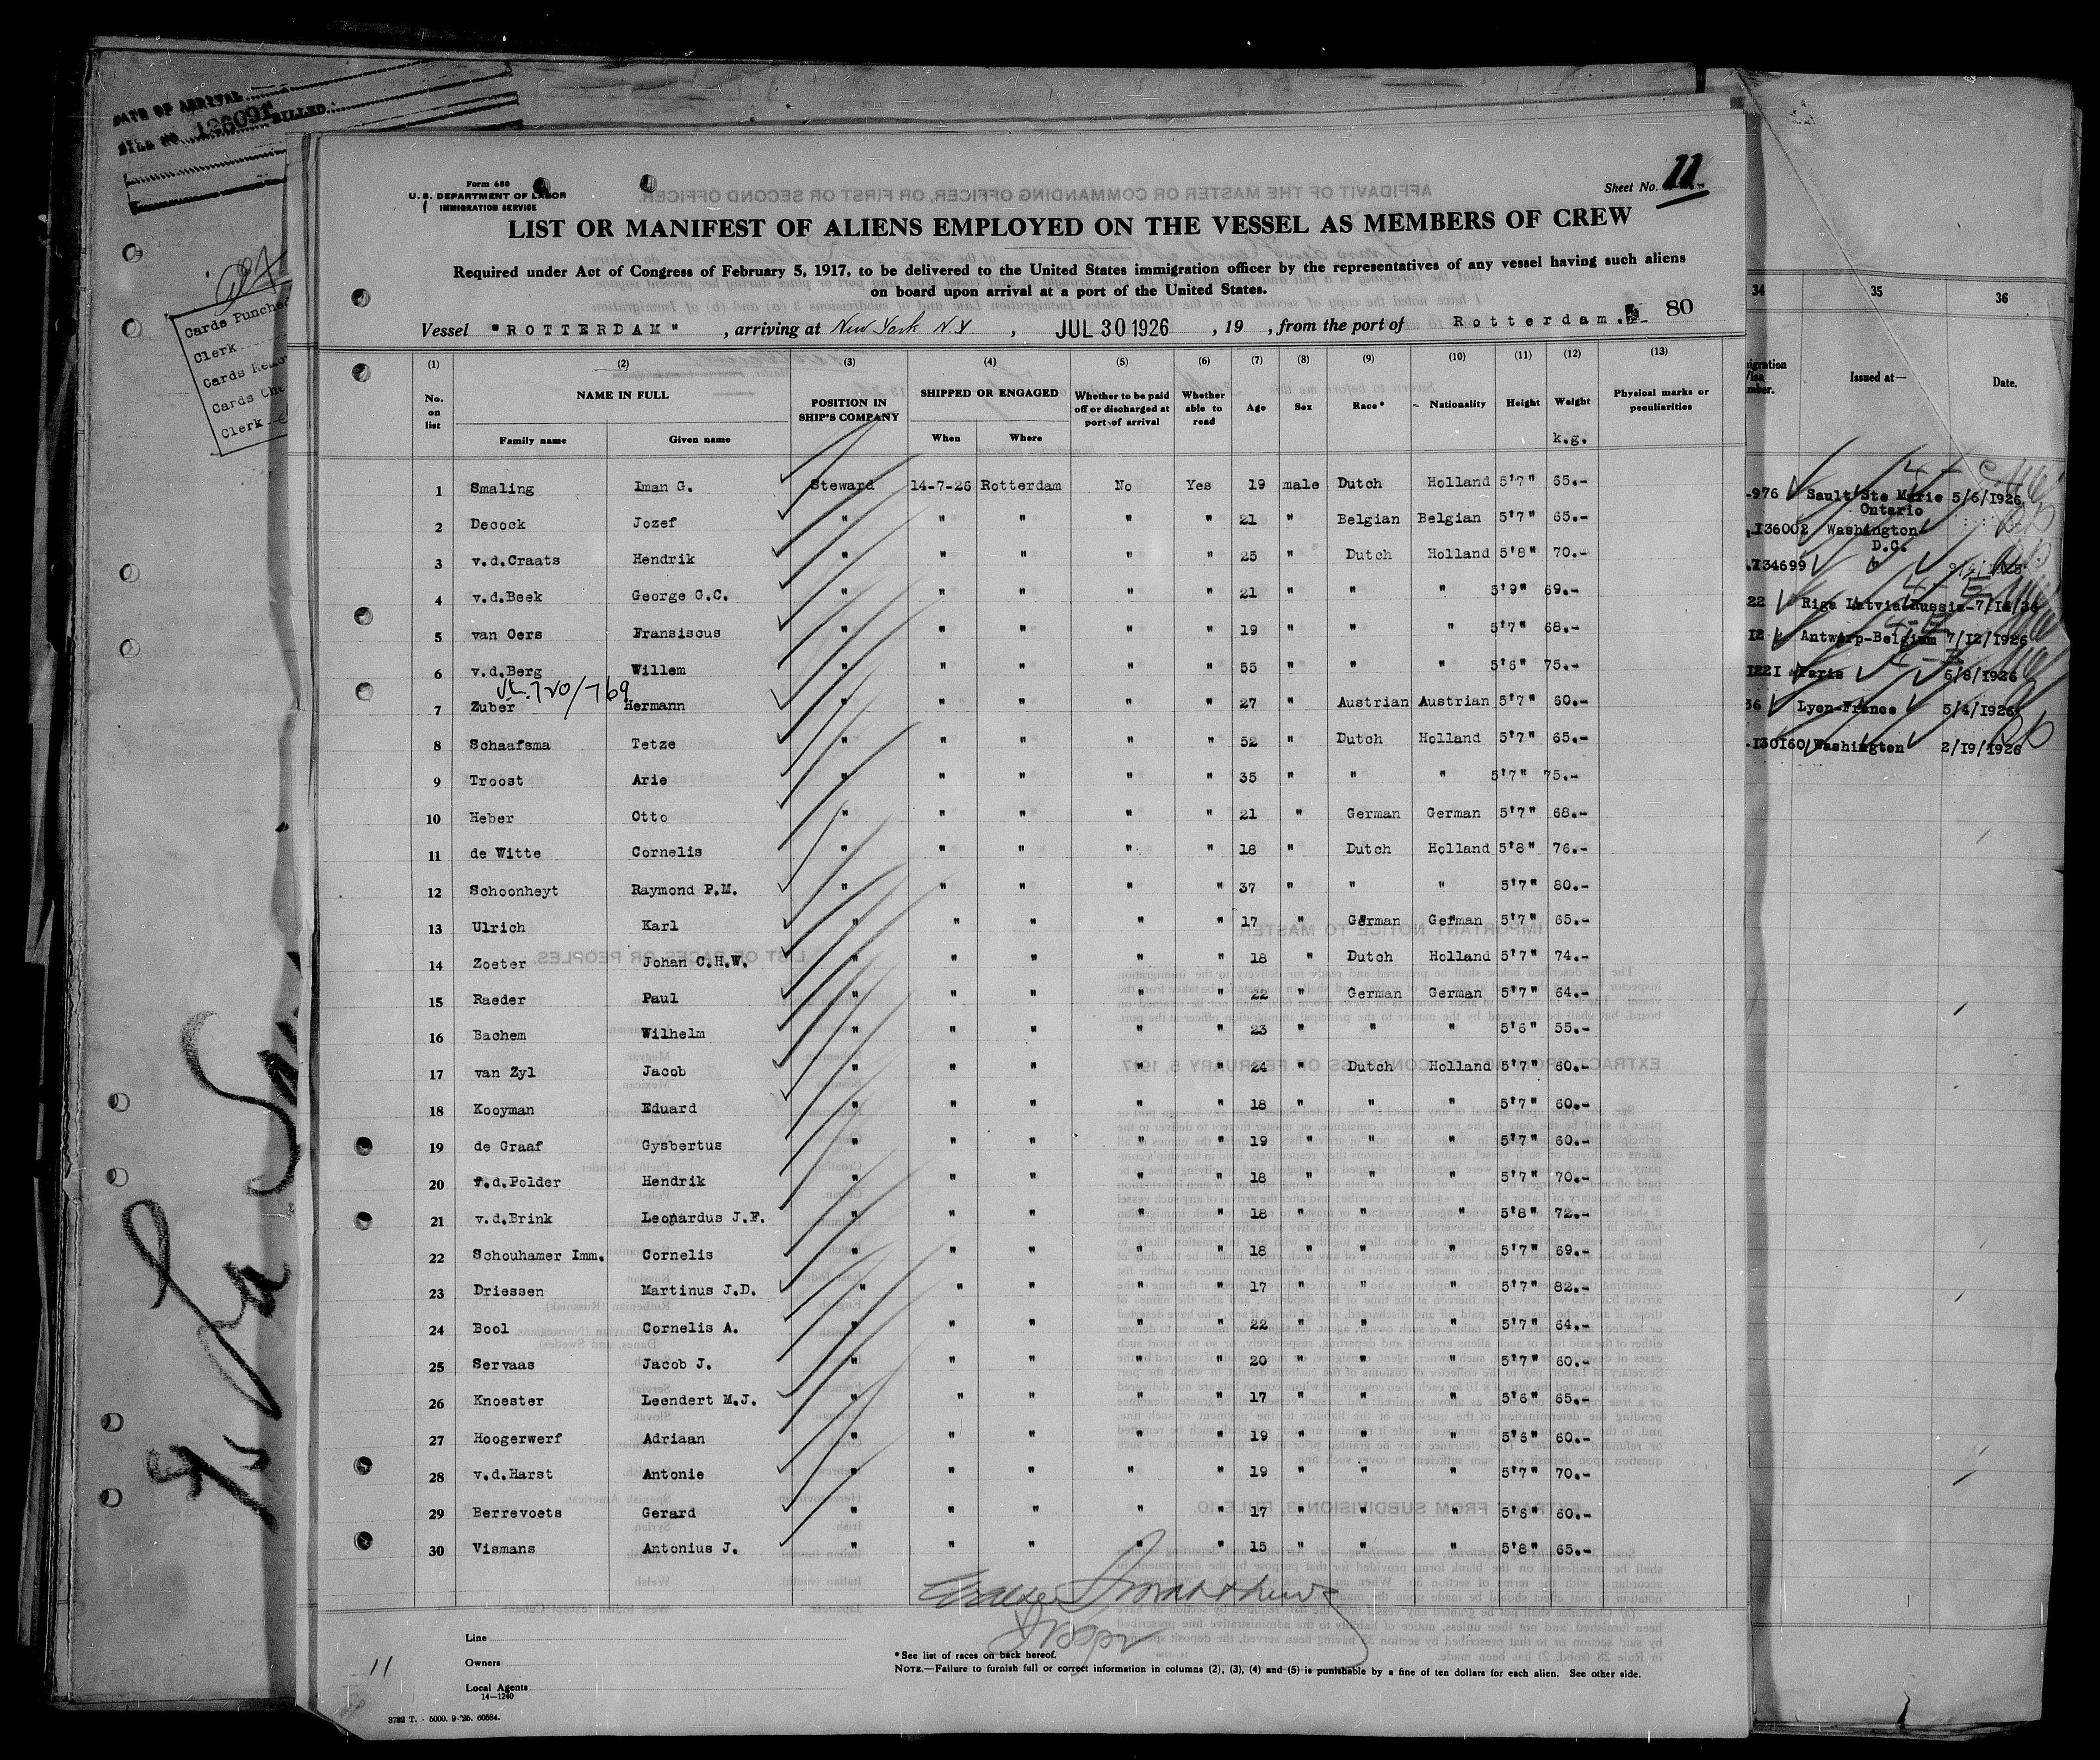 DATE OF ARRIVAL
BILL NO. 126091 BILLED
Cards Punched
Clerk
Cards
Cards Che
Clerk
Form 680
U. S. DEPARTMENT OF LABOR
IMMIGRATION SERVICE
Sheet No. 11
LIST OR MANIFEST OF ALIENS EMPLOYED ON THE VESSEL AS MEMBERS OF CREW
Required under Act of Congress of February 5, 1917, to be delivered to the United States immigration officer by the representatives of any vessel having such aliens
on board upon arrival at a port of the United States.
80
Vessel "ROTTERDAM" , arriving at New York N.Y. , JUL 30 1926 , 19 , from the port of Rotterdam.
(1) (2) (3) (4) (5) (6) (7) (8) (9) (10) (11) (12) (13)
No. on list NAME IN FULL Family name Given name POSITION IN SHIP'S COMPANY SHIPPED OR ENGAGED When Where Whether to be paid off or discharged at port of arrival Whether able to read Age Sex Race* Nationality Height Weight k.g. Physical marks or peculiarities
1 Smaling Iman G. Steward 14-7-26 Rotterdam No Yes 19 male Dutch Holland 5'7" 65.-
2 Decock Jozef " " " " " 21 " Belgian Belgian 5'7" 65.-
3 v.d.Craats Hendrik " " " " " 25 " Dutch Holland 5'8" 70.-
4 v.d.Beek George G.C. " " " " " 21 " " " 5'9" 69.-
5 van Oers Fransiscus " " " " " 19 " " " 5'7" 68.-
6 v.d.Berg Willem " " " " " 55 " " " 5'6" 75.-
720/769
7 Zuber Hermann " " " " " 27 " Austrian Austrian 5'7" 60.-
8 Schaafsma Tetze " " " " " 52 " Dutch Holland 5'7" 65.-
9 Troost Arie " " " " " 35 " " " 5'7" 75.-
10 Heber Otto " " " " " 21 " German German 5'7" 68.-
11 de Witte Cornelis " " " " " 18 " Dutch Holland 5'8" 76.-
12 Schoonheyt Raymond P.M. " " " " " 37 " " " 5'7" 80.-
13 Ulrich Karl " " " " " 17 " German German 5'7" 65.-
14 Zoeter Johan C.H.W. " " " " " 18 " Dutch Holland 5'7" 74.-
15 Raeder Paul " " " " " 22 " German German 5'7" 64.-
16 Bachem Wilhelm " " " " " 23 " " " 5'6" 55.-
17 van Zyl Jacob " " " " " 24 " Dutch Holland 5'7" 60.-
18 Kooyman Eduard " " " " " 18 " " " 5'7" 60.-
19 de Graaf Gysbertus " " " " " 19 " " " 5'7" 60.-
20 v.d.Polder Hendrik " " " " " 18 " " " 5'7" 70.-
21 v.d.Brink Leonardus J.F. " " " " " 18 " " " 5'8" 72.-
22 Schouhamer Imm. Cornelis " " " " " 18 " " " 5'7" 69.-
23 Driessen Martinus J.D. " " " " " 17 " " " 5'7" 82.-
24 Bool Cornelis A. " " " " " 22 " " " 5'7" 64.-
25 Servaas Jacob J. " " " " " 20 " " " 5'7" 60.-
26 Knoester Leendert M.J. " " " " " 17 " " " 5'6" 65.-
27 Hoogerwerf Adriaan " " " " " 19 " " " 5'6" 60.-
28 v.d.Harst Antonie " " " " " 19 " " " 5'7" 70.-
29 Berrevoets Gerard " " " " " 17 " " " 5'6" 60.-
30 Vismans Antonius J. " " " " " 15 " " " 5'8" 65.-
Line
Owners
Local Agents
14—1240
* See list of races on back hereof.
NOTE.—Failure to furnish full or correct information in columns (2), (3), (4) and (5) is punishable by a fine of ten dollars for each alien. See other side.
11
3782 T. - 5000. 9-'25. 60584.
34 35 36
Issued at— Date.
-976 Sault Ste Marie Ontario 5/6/1926
136002 Washington D.C.
134699 "
22 Riga Latvia Russia-7/14/26
12 Antwerp-Belgium 7/12/1926
1221 Paris 6/8/1926
36 Lyon-France 5/4/1926
-130160 Washington 2/19/1926